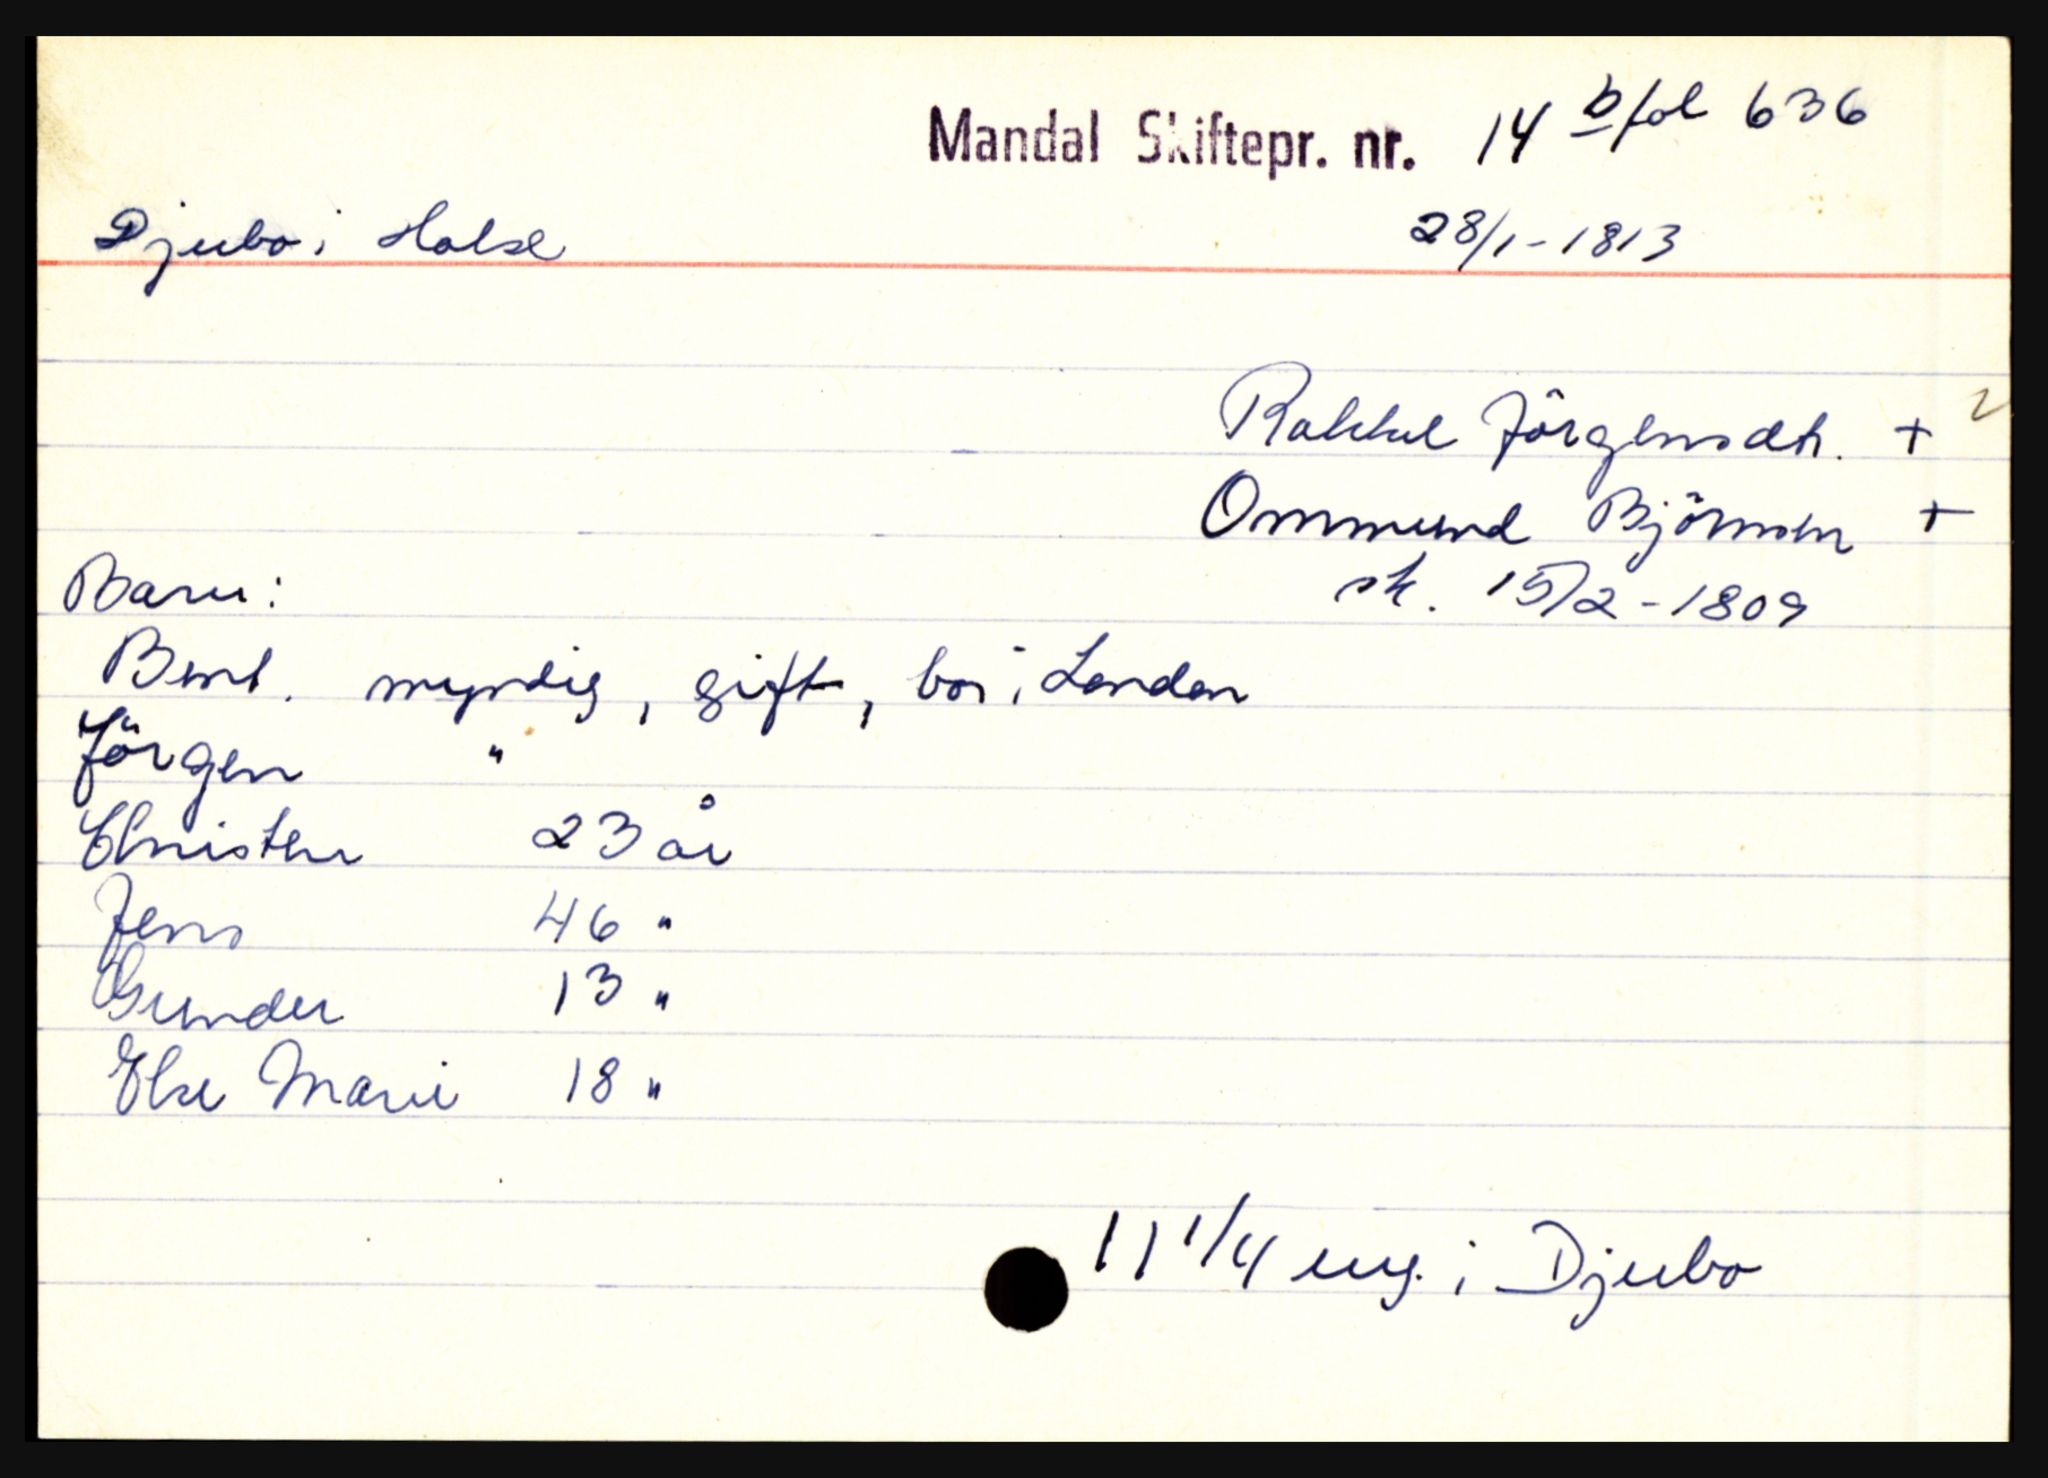 Mandal Skiftepr. nr. 14 b fol 636
Djubo i Halse 28/1-1813
Rakkel Jörgensdtr. +
Ommund Björnsen +
sk. 15/2-1809
Barn:
Bent. myndig, gift, bor i London
Jörgen "
Christen 23 år
Jens 46 "
Gunder 13 "
Else Marie 18 "
11 1/4 eng. i Djubo